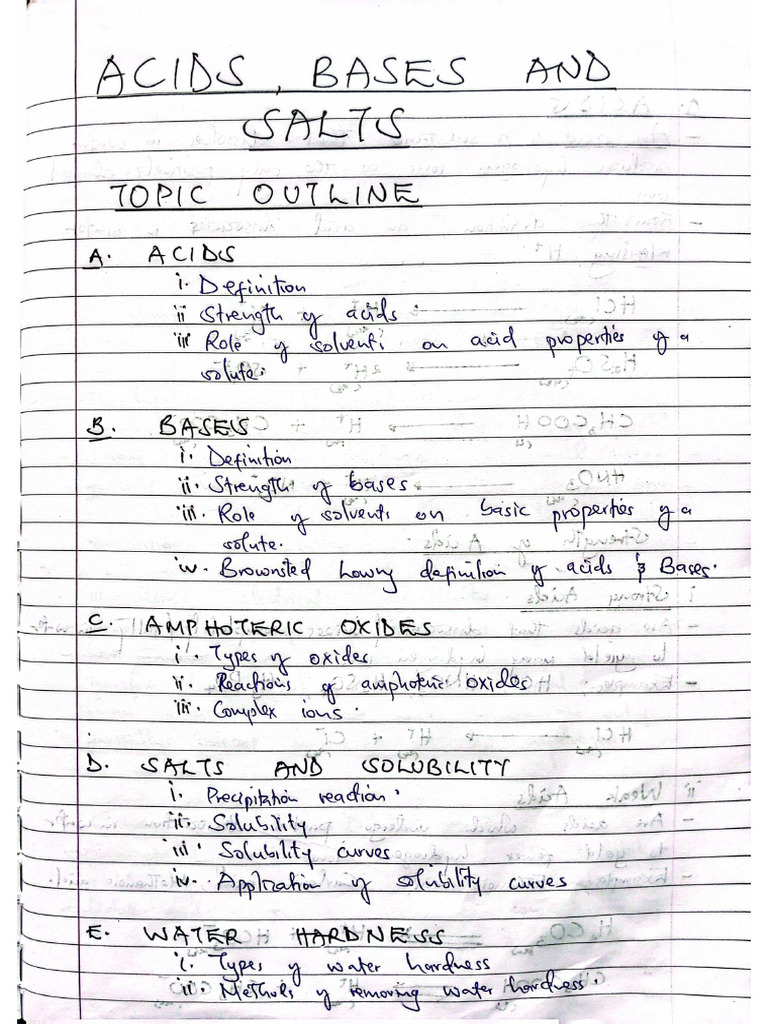 ACIDS, BASES AND
SALTS
TOPIC OUTLINE
A. ACIDS
i. Definition
ii Strength of acids
iii Role of solvents on acid properties of a
solute.
B. BASES
i. Definition
ii. Strength of bases
iii. Role of solvents on basic properties of a
solute.
iv. Brownsted Lowry definition of acids & Bases.
C. AMPHOTERIC OXIDES
i. Types of oxides
ii. Reactions of amphoteric oxides
iii. Complex ions.
D. SALTS AND SOLUBILITY
i. Precipitation reaction.
ii. Solubility
iii. Solubility curves
iv. Application of solubility curves
E. WATER HARDNESS
i. Types of water hardness
ii. Methods of removing water hardness.